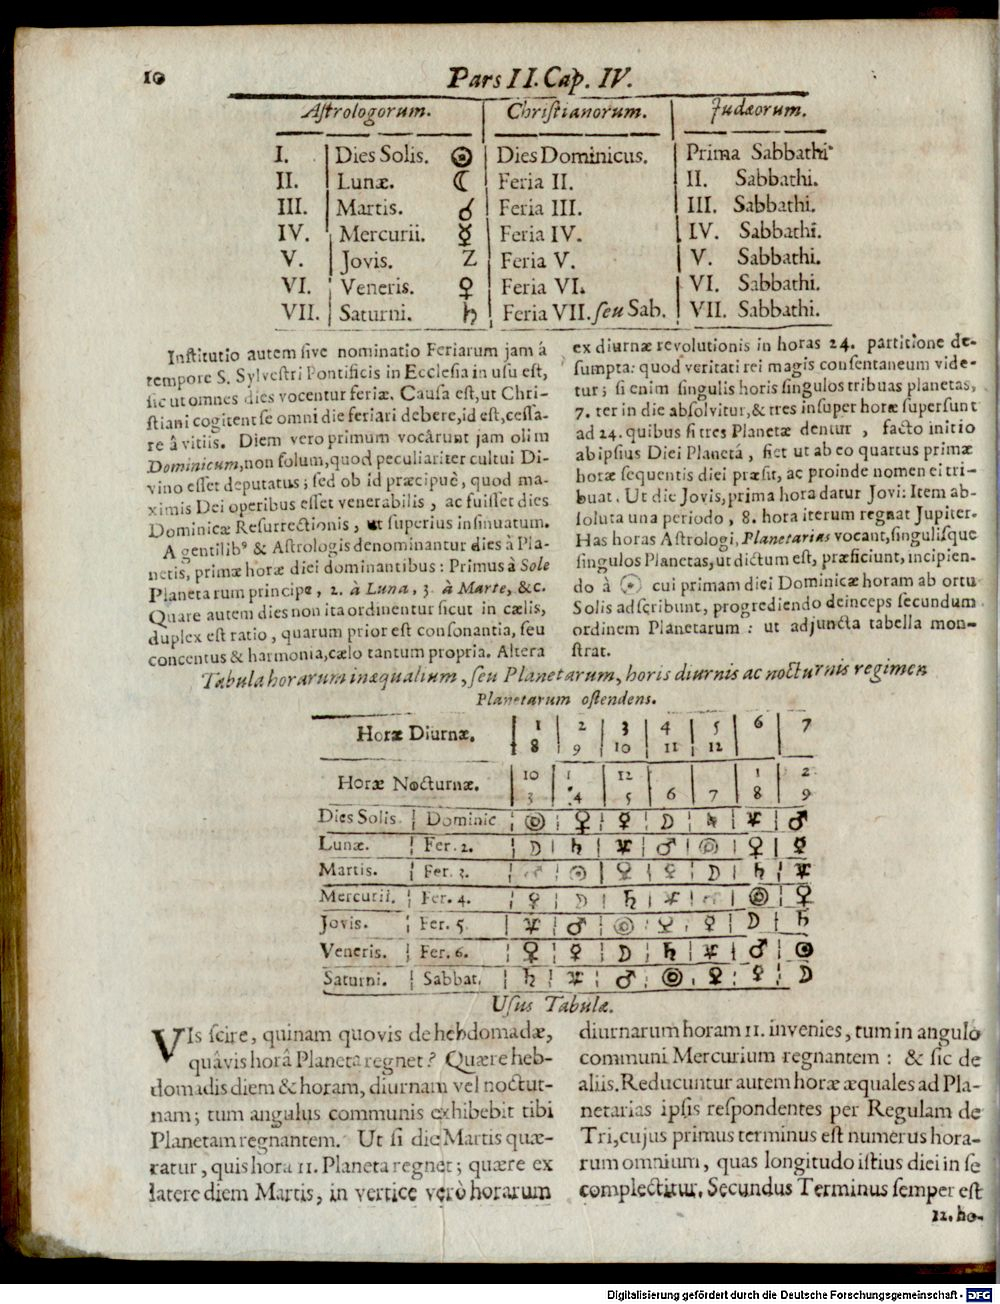 10 Pars II. Cap. IV.
Aſtrologorum. Chriſtianorum. Judæorum.
I. Dies Solis. ☉ Dies Dominicus. Prima Sabbathi
II. Lunæ. ☾ Feria II. II. Sabbathi.
III. Martis. ♂ Feria III. III. Sabbathi.
IV. Mercurii. ☿ Feria IV. IV. Sabbathi.
V. Jovis. Z Feria V. V. Sabbathi.
VI. Veneris. ♀ Feria VI. VI. Sabbathi.
VII. Saturni. ♄ Feria VII. ſeu Sab. VII. Sabbathi.
Inſtitutio autem ſive nominatio Feriarum jam á
tempore S. Sylveſtri Pontificis in Eccleſia in uſu eſt,
ſic ut omnes dies vocentur feriæ. Cauſa eſt, ut Chri-
ſtiani cogitent ſe omni die feriari debere, id eſt, ceſſa-
re â vitiis. Diem vero primum vocârunt jam olim
Dominicum, non ſolum, quod peculiariter cultui Di-
vino eſſet deputatus; ſed ob id præcipuè, quod ma-
ximis Dei operibus eſſet venerabilis, ac fuiſſet dies
Dominicæ Reſurrectionis, ut ſuperius inſinuatum.
A gentilibꝰ & Aſtrologis denominantur dies à Pla-
netis, primæ horæ diei dominantibus: Primus à Sole
Planetarum principe, 2. à Luna, 3. à Marte, &c.
Quare autem dies non ita ordinentur ſicut in cælis,
duplex eſt ratio, quarum prior eſt conſonantia, ſeu
concentus & harmonia, cælo tantum propria. Altera
ex diurnæ revolutionis in horas 24. partitione de-
ſumpta: quod veritati rei magis conſentaneum vide-
tur; ſi enim ſingulis horis ſingulos tribuas planetas,
7. ter in die abſolvitur, & tres inſuper horæ ſuperſunt
ad 24. quibus ſi tres Planetæ dentur, facto initio
ab ipſius Diei Planetâ, fiet ut ab eo quartus primæ
horæ ſequentis diei præſit, ac proinde nomen ei tri-
buat. Ut die Jovis, prima hora datur Jovi: Item ab-
ſoluta una periodo, 8. hora iterum regnat Jupiter.
Has horas Aſtrologi, Planetarias vocant, ſinguliſque
ſingulos Planetas, ut dictum eſt, præficiunt, incipien-
do à ☉ cui primam diei Dominicæ horam ab ortu
Solis adſcribunt, progrediendo deinceps ſecundum
ordinem Planetarum: ut adjuncta tabella mon-
ſtrat.
Tabula horarum inæqualium, ſeu Planetarum, horis diurnis ac nocturnis regimen
Planetarum oſtendens.
Horæ Diurnæ. 1 2 3 4 5 6 7
8 9 10 11 12
Horæ Nocturnæ. 10 1 12 1 2
3 4 5 6 7 8 9
Dies Solis. Dominic ☉ ♀ ☿ ☽ ♄ ♃ ♂
Lunæ. Fer. 2. ☽ ♄ ♃ ♂ ☉ ♀ ☿
Martis. Fer. 3. ♂ ☉ ♀ ☿ ☽ ♄ ♃
Mercurii. Fer. 4. ☿ ☽ ♄ ♃ ♂ ☉ ♀
Jovis. Fer. 5. ♃ ♂ ☉ ♀ ☿ ☽ ♄
Veneris. Fer. 6. ♀ ☿ ☽ ♄ ♃ ♂ ☉
Saturni. Sabbat. ♄ ♃ ♂ ☉ ♀ ☿ ☽
Uſus Tabulæ.
VIs ſcire, quinam quovis de hebdomadæ,
quâvis horâ Planeta regnet? Quære heb-
domadis diem & horam, diurnam vel noctur-
nam; tum angulus communis exhibebit tibi
Planetam regnantem. Ut ſi die Martis quæ-
ratur, quis hora 11. Planeta regnet; quære ex
latere diem Martis, in vertice verò horarum
diurnarum horam 11. invenies, tum in angulo
communi Mercurium regnantem: & ſic de
aliis. Reducuntur autem horæ æquales ad Pla-
netarias ipſis reſpondentes per Regulam de
Tri, cujus primus terminus eſt numerus hora-
rum omnium, quas longitudo iſtius diei in ſe
complectitur. Secundus Terminus ſemper eſt
12. ho-
Digitalisierung gefördert durch die Deutsche Forschungsgemeinschaft - DFG